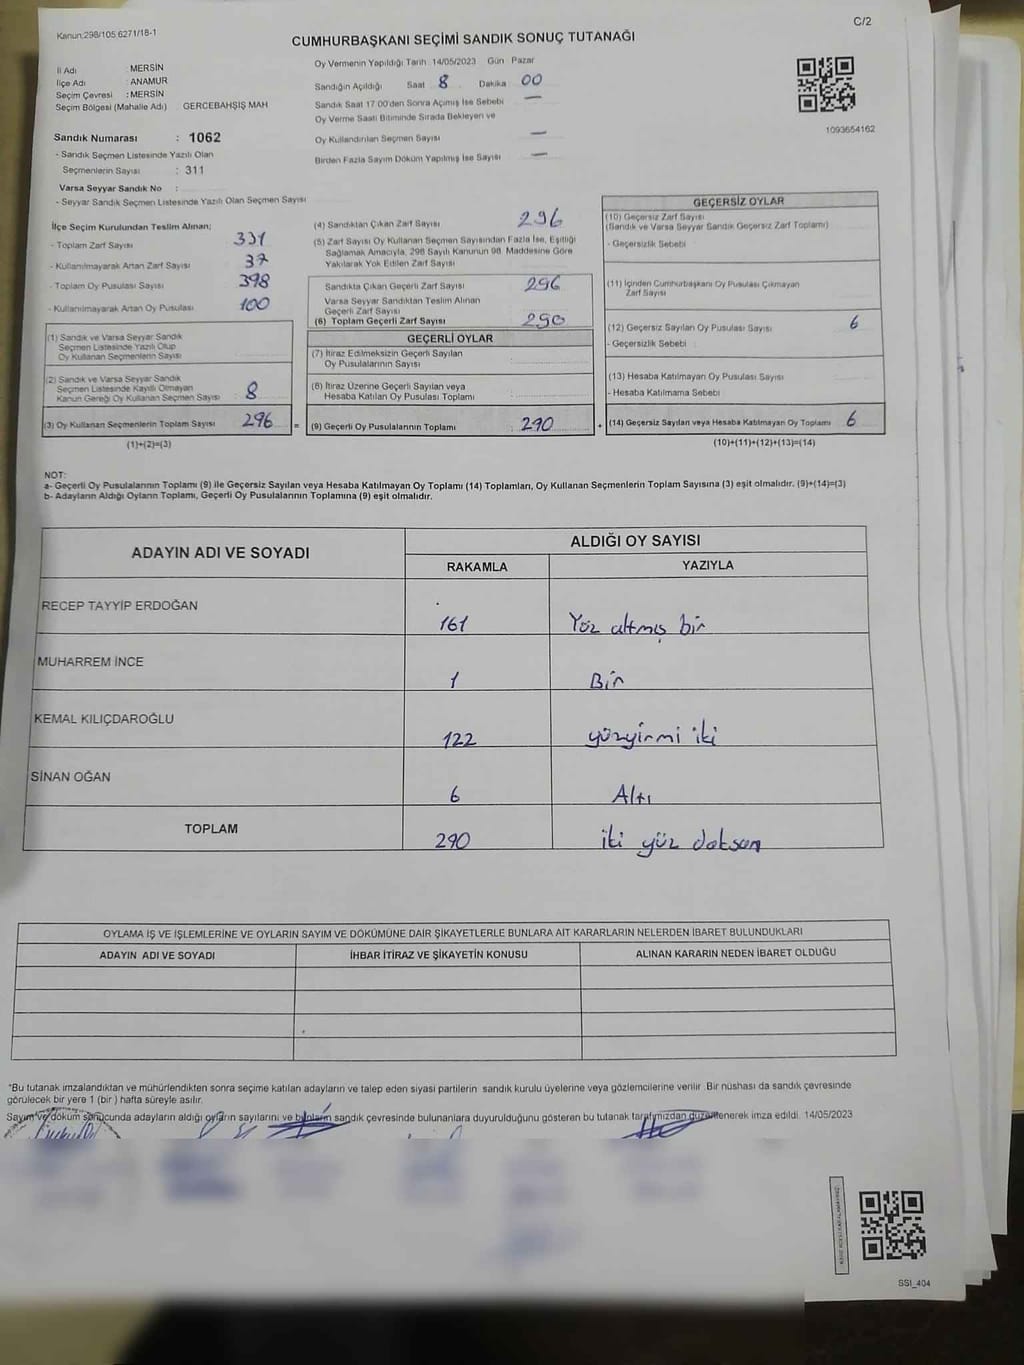 Kanun:298/105,6271/18-1
C/2
CUMHURBAŞKANI SEÇİMİ SANDIK SONUÇ TUTANAĞI
İl Adı : MERSİN
İlçe Adı : ANAMUR
Seçim Çevresi : MERSİN
Seçim Bölgesi (Mahalle Adı) GERCEBAHŞİŞ MAH
Sandık Numarası : 1062
- Sandık Seçmen Listesinde Yazılı Olan
Seçmenlerin Sayısı : 311
Varsa Seyyar Sandık No :
- Seyyar Sandık Seçmen Listesinde Yazılı Olan Seçmen Sayısı
Oy Vermenin Yapıldığı Tarih :14/05/2023 Gün Pazar
Sandığın Açıldığı Saat 8 Dakika 00
Sandık Saat 17.00'den Sonra Açımış İse Sebebi —
Oy Verme Saati Bitiminde Sırada Bekleyen ve
Oy Kullandırılan Seçmen Sayısı —
Birden Fazla Sayım Döküm Yapılmış İse Sayısı —
1093654162
İlçe Seçim Kurulundan Teslim Alınan;
- Toplam Zarf Sayısı 331
- Kullanılmayarak Artan Zarf Sayısı 37
- Toplam Oy Pusulası Sayısı 398
- Kullanılmayarak Artan Oy Pusulası 100
(1) Sandık ve Varsa Seyyar Sandık
Seçmen Listesinde Yazılı Olup
Oy Kullanan Seçmenlerin Sayısı
(2) Sandık ve Varsa Seyyar Sandık
Seçmen Listesinde Kayıtlı Olmayan
Kanun Gereği Oy Kullanan Seçmen Sayısı 8
(3) Oy Kullanan Seçmenlerin Toplam Sayısı 296 =
(1)+(2)=(3)
(4) Sandıktan Çıkan Zarf Sayısı 296
(5) Zarf Sayısı Oy Kullanan Seçmen Sayısından Fazla İse, Eşitliği
Sağlamak Amacıyla, 298 Sayılı Kanunun 98. Maddesine Göre
Yakılarak Yok Edilen Zarf Sayısı
Sandıkta Çıkan Geçerli Zarf Sayısı 296
Varsa Seyyar Sandıktan Teslim Alınan
Geçerli Zarf Sayısı
(6) Toplam Geçerli Zarf Sayısı 290
GEÇERLİ OYLAR
(7) İtiraz Edilmeksizin Geçerli Sayılan
Oy Pusulalarının Sayısı
(8) İtiraz Üzerine Geçerli Sayılan veya
Hesaba Katılan Oy Pusulası Toplamı
(9) Geçerli Oy Pusulalarının Toplamı : 290 +
GEÇERSİZ OYLAR
(10) Geçersiz Zarf Sayısı
(Sandık ve Varsa Seyyar Sandık Geçersiz Zarf Toplamı)
- Geçersizlik Sebebi
(11) İçinden Cumhurbaşkanı Oy Pusulası Çıkmayan
Zarf Sayısı
(12) Geçersiz Sayılan Oy Pusulası Sayısı 6
- Geçersizlik Sebebi
(13) Hesaba Katılmayan Oy Pusulası Sayısı
- Hesaba Katılmama Sebebi
(14) Geçersiz Sayılan veya Hesaba Katılmayan Oy Toplamı 6
(10)+(11)+(12)+(13)=(14)
NOT:
a- Geçerli Oy Pusulalarının Toplamı (9) ile Geçersiz Sayılan veya Hesaba Katılmayan Oy Toplamı (14) Toplamları, Oy Kullanan Seçmenlerin Toplam Sayısına (3) eşit olmalıdır. (9)+(14)=(3)
b- Adayların Aldığı Oyların Toplamı, Geçerli Oy Pusulalarının Toplamına (9) eşit olmalıdır.
ADAYIN ADI VE SOYADI
ALDIĞI OY SAYISI
RAKAMLA YAZIYLA
RECEP TAYYİP ERDOĞAN 161 Yüz altmış bir
MUHARREM İNCE 1 Bir
KEMAL KILIÇDAROĞLU 122 yüzyirmi iki
SİNAN OĞAN 6 Altı
TOPLAM 290 iki yüz doksan
OYLAMA İŞ VE İŞLEMLERİNE VE OYLARIN SAYIM VE DÖKÜMÜNE DAİR ŞİKAYETLERLE BUNLARA AİT KARARLARIN NELERDEN İBARET BULUNDUKLARI
ADAYIN ADI VE SOYADI İHBAR İTİRAZ VE ŞİKAYETİN KONUSU ALINAN KARARIN NEDEN İBARET OLDUĞU
*Bu tutanak imzalandıktan ve mühürlendikten sonra seçime katılan adayların ve talep eden siyasi partilerin sandık kurulu üyelerine veya gözlemcilerine verilir. Bir nüshası da sandık çevresinde
görülecek bir yere 1 (bir) hafta süreyle asılır.
Sayım ve döküm sonucunda adayların aldığı oyların sayılarını ve bunların sandık çevresinde bulunanlara duyurulduğunu gösteren bu tutanak tarafımızdan düzenlenerek imza edildi. 14/05/2023
SSI_404